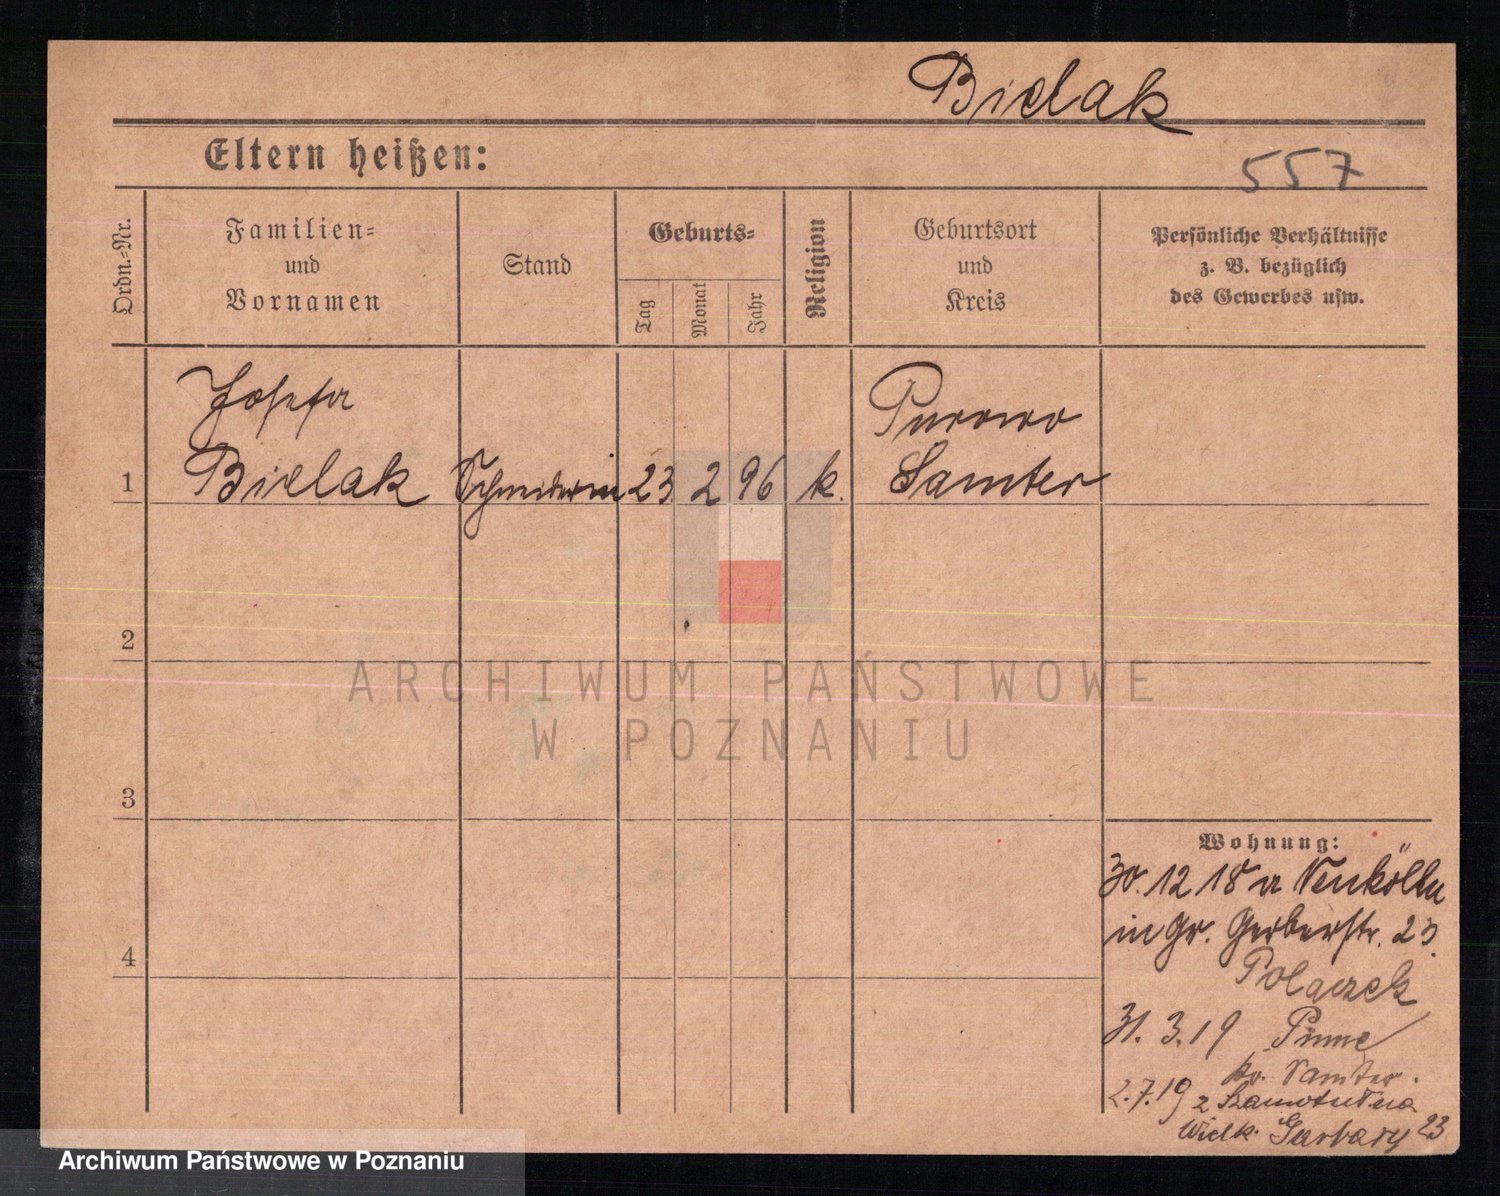 Bielak
Eltern heißen:
557
Ordn.-Nr.
Familien-
und
Vornamen
Stand
Geburts-
Tag
Monat
Jahr
Religion
Geburtsort
und
Kreis
Persönliche Verhältnisse
z. B. bezüglich
des Gewerbes usw.
Josefa
Bielak
1
Schneiderin
23
2
96
k.
Samter
2
3
4
Wohnung:
30. 12 18 a Neukölln
in Gr. Gerberstr. 23.
Polaczek
31. 3. 19 Pinne
Kr. Samter.
2.7.19 z Szamotuł na
Wielk. Garbary 23
ARCHIWUM PAŃSTWOWE
W POZNANIU
Archiwum Państwowe w Poznaniu